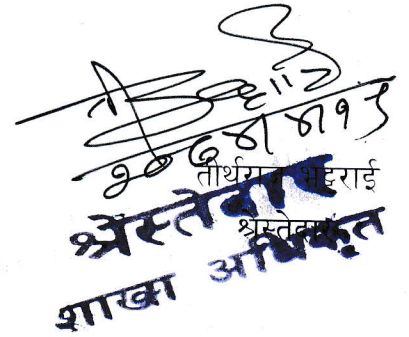 तीर्थराज भट्टराई
श्रेस्तेदार
श्रेस्तेदार
शाखा अधिकृत